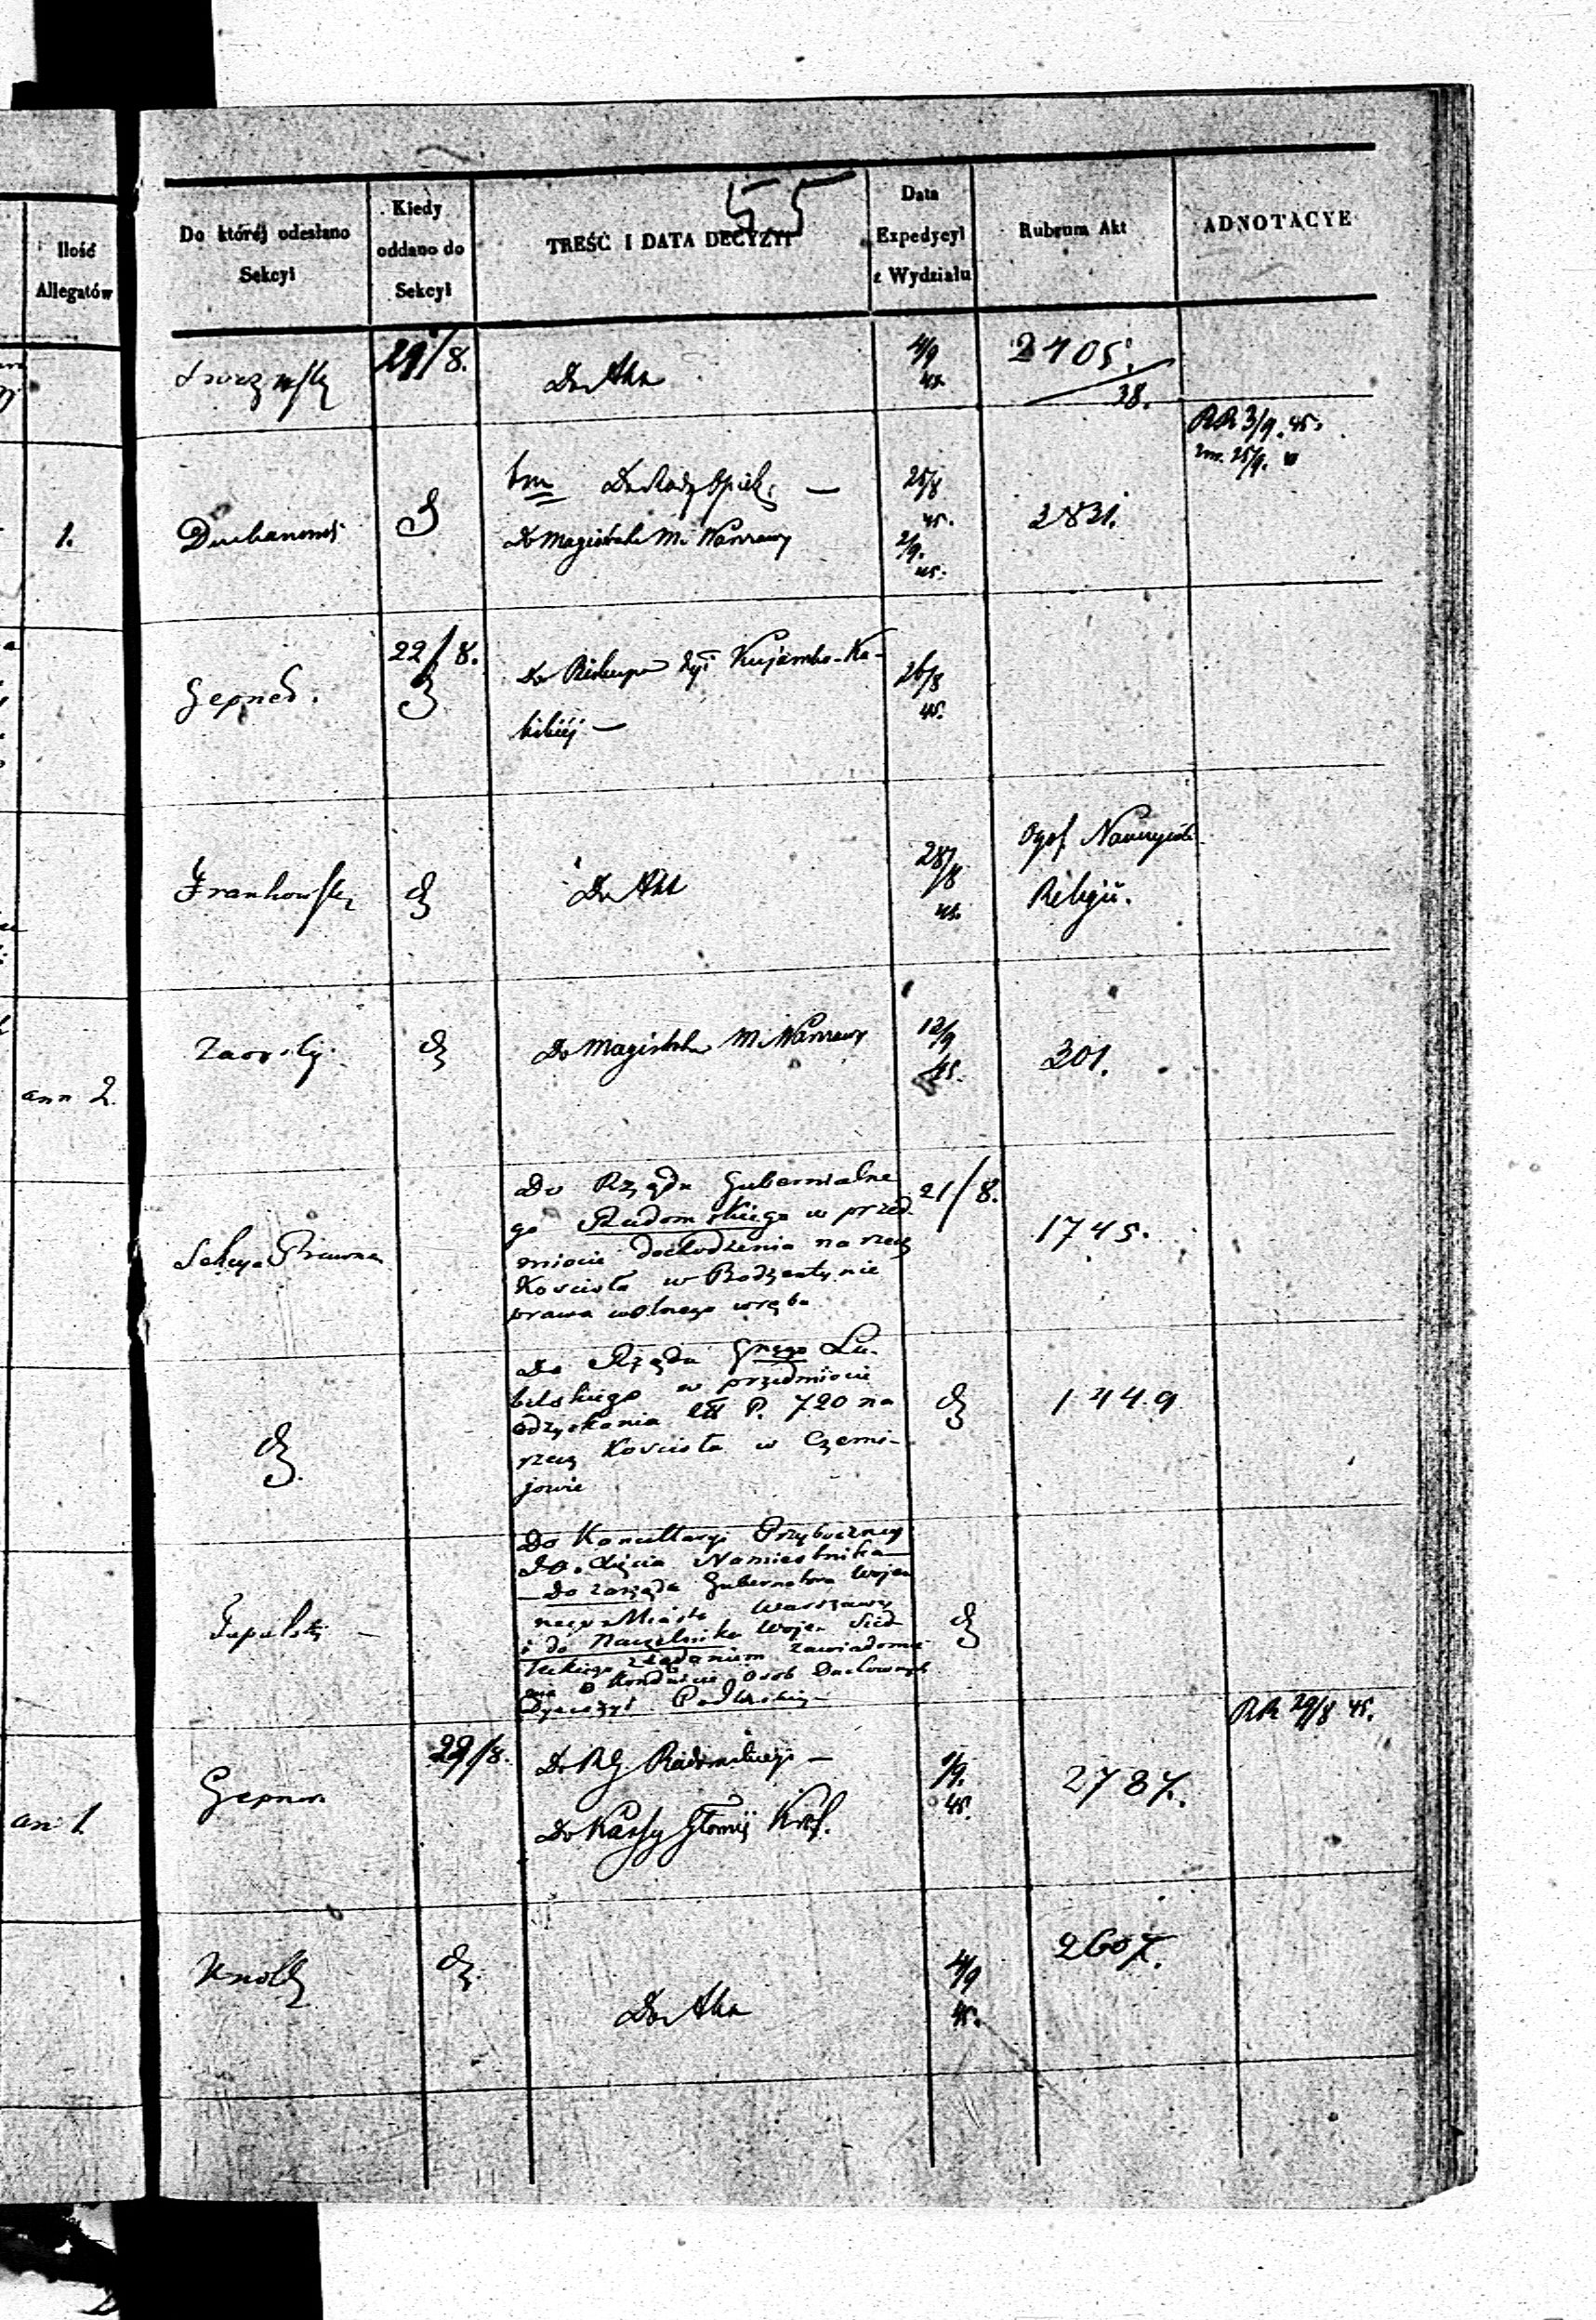 55
Ilość
Allegatów
Do której odesłano
Sekcyi
Kiedy
oddano do
Sekcyi
TREŚĆ I DATA DECYZYI
Data
Expedycyi
z Wydziału
Rubrum Akt
ADNOTACYE
21/8.
Do Akt
4/9
45.
2405.
38.
RR 3/9. 45.
25/9.
1.
Do Rady Opiek.
Do Magistratu M. Warszawy
25/8
45.
2/9.
45.
2831.
Gepner.
22/8.
Do Biskupa Dyi Kujawsko-Ka-
liskiéj —
26/8
45.
Frankowski
Do Akt
28/8
45.
Nauczyciele
Religii.
ann 2.
Zaorski
Do Magistratu M. Warszawy
12/9
45.
301.
Sekcya Prawna
Do Rządu Gubernialne
go Radomskiego w przed
miocie dochodzenia na rzecz
Kościoła w Bodzentynie
prawa wolnego wrębu
21/8.
1745.
Do Rządu Gnego Lu-
belskiego w przedmiocie
odzyskania P. 720 na
rzecz Kościoła w Czerni-
jowie
1449
Do Kancellaryi Przyboczney
JO. Xięcia Namiestnika —
— Do zarządu Gubernatora Wojen
nego Miasta Warszawy
i do Naczelnika Wojen Sied
leckiego z żądaniem zawiadomie
nia o Konduicie Osob Duchownych
Dyecezyi Podlaskiej —
an 1.
Gepner
22/8.
Do R. G. Radomskiego —
Do Kassy Głownéj
1/9.
45.
2787.
RR 29/8 45.
Knoll
Do Akt
4/9
45.
2607.